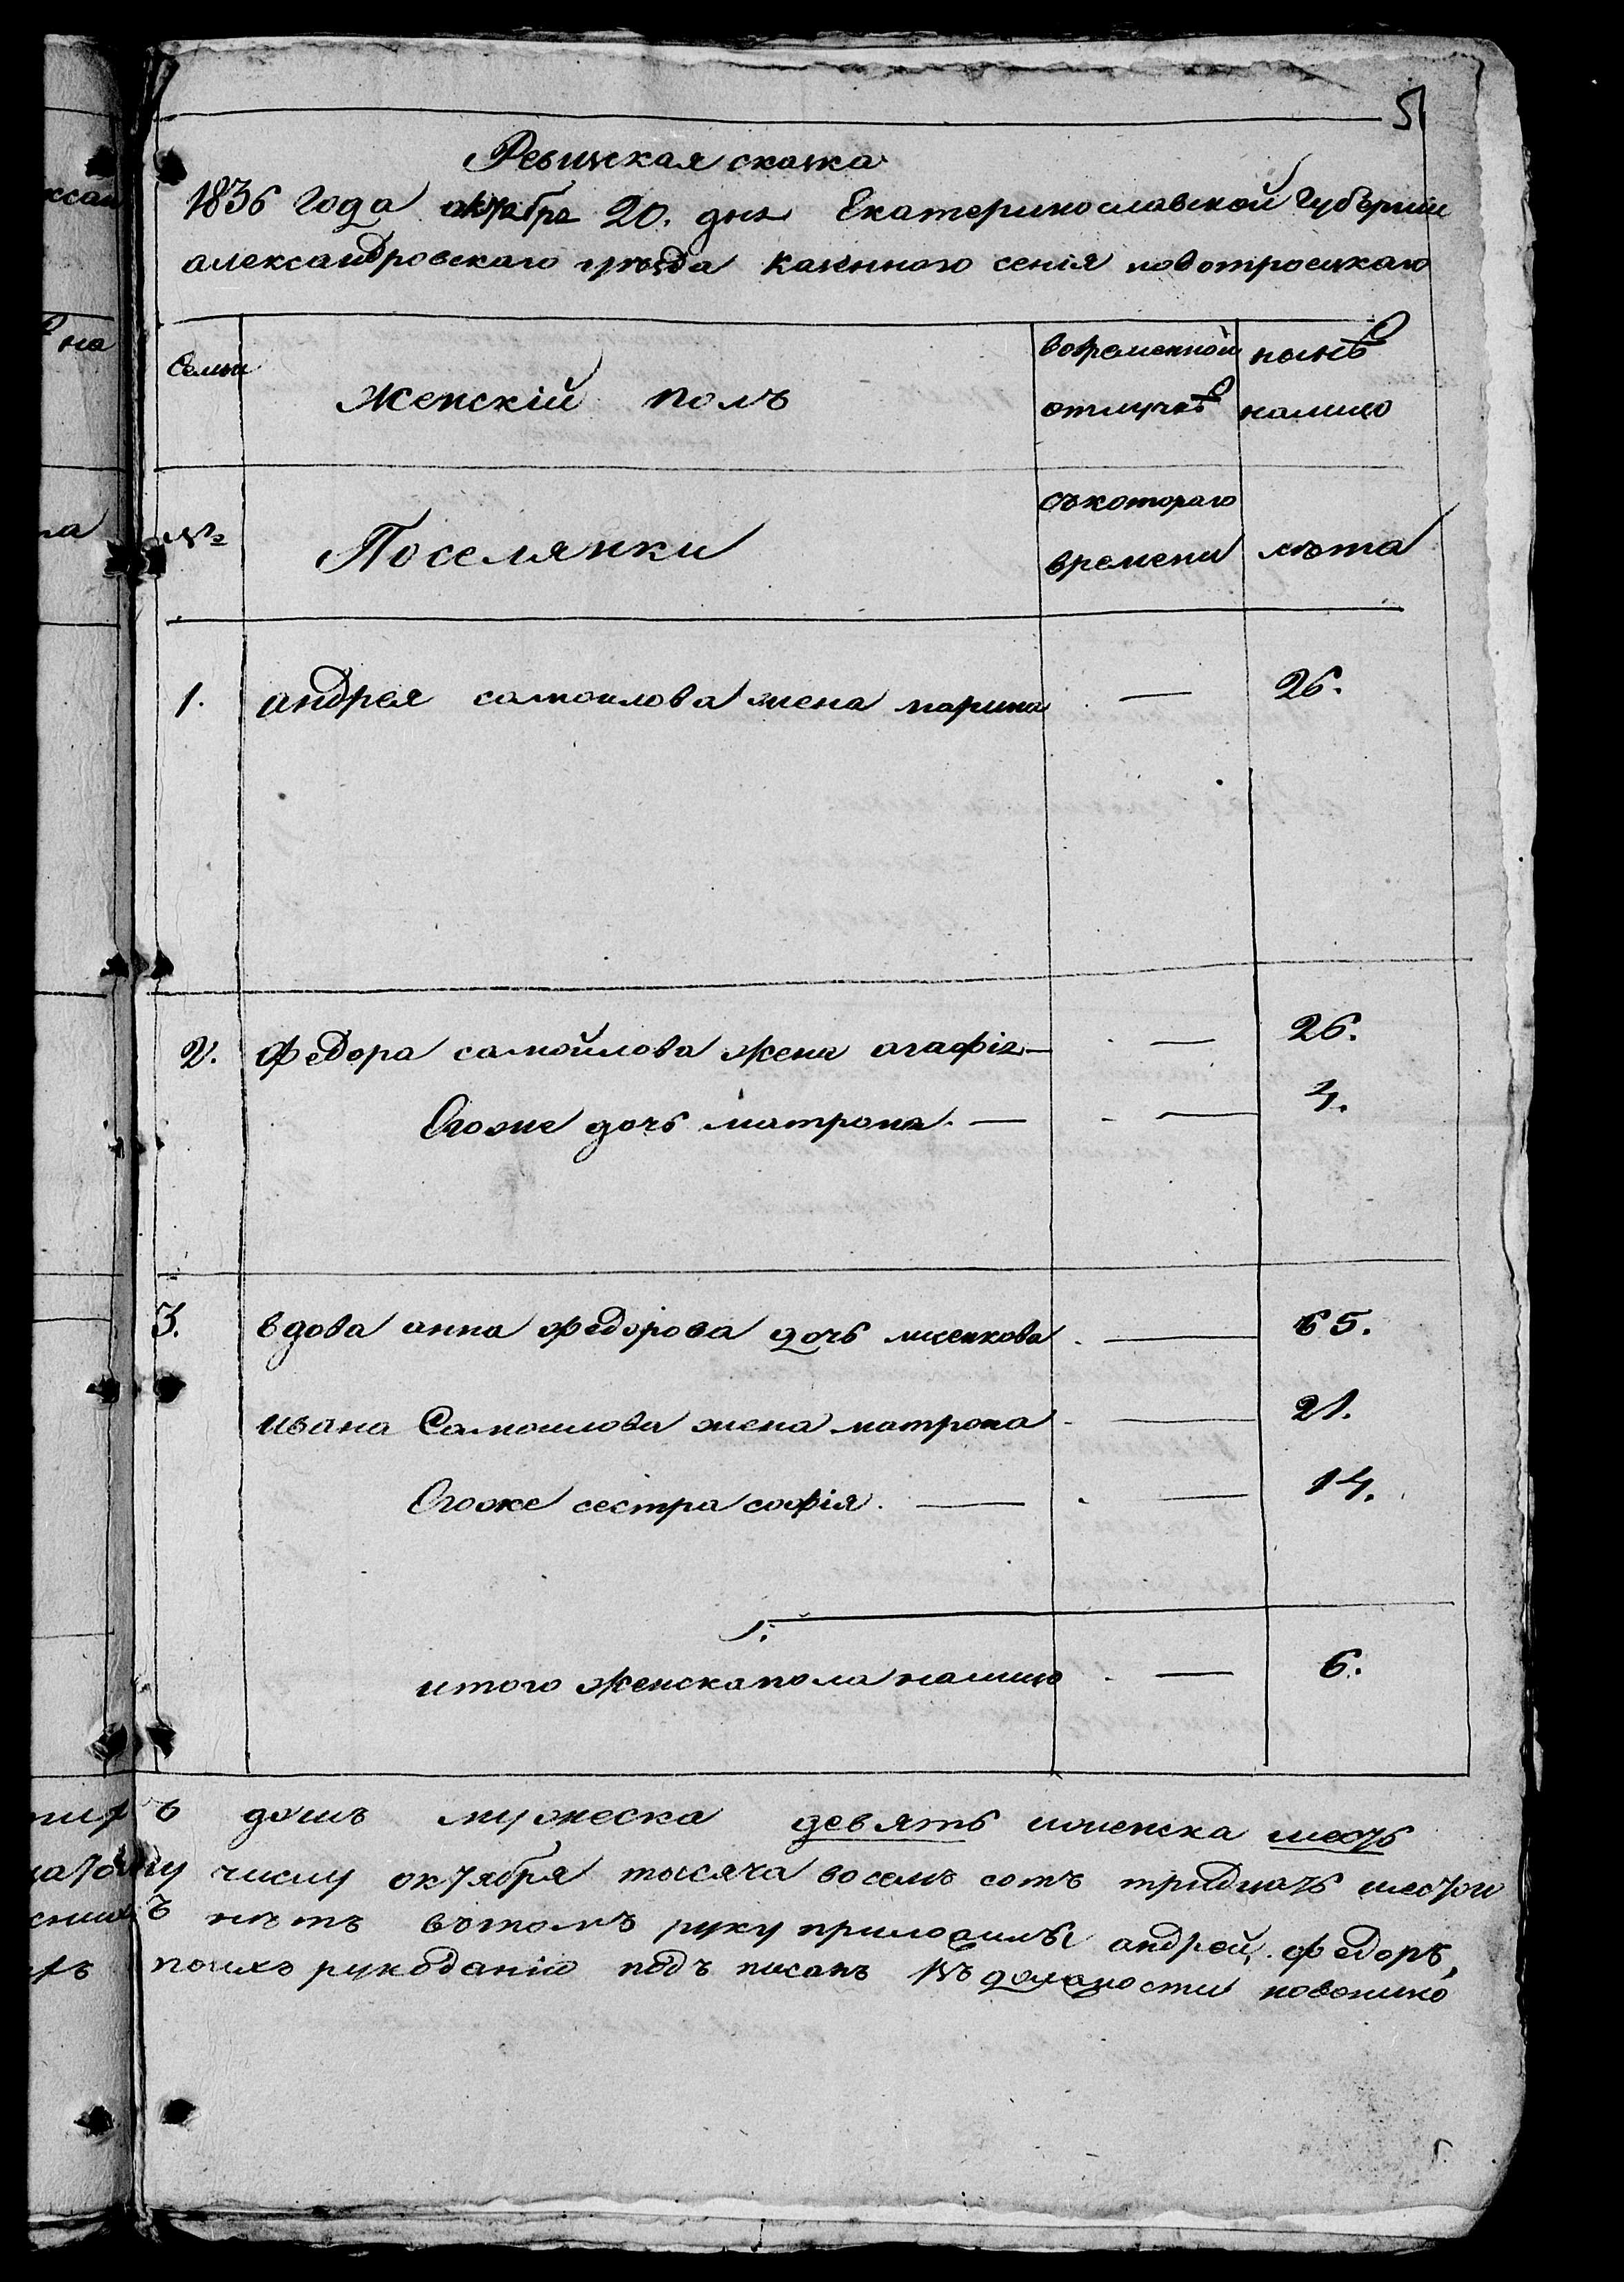 51
Ревижская скажка
1836 Года октября 20. дня Екатеринославской Губѣрніи
александровскаго уѣзда Казенного сенія новотроецкаго
Семьи
Женскій полъ
вовременной отлучкѣ
нынѣ налицо
№
Поселянки
съкотораго времени
лѣта
1. андрея самоилова жена марина — 26.
2. Федора самойлова жена агафія — — 26.
Егоже дочь матрона. — — 4.
3. вдова анна федорова дочь — 65.
ивана Самоилова жена матрона — 21.
Егоже сестра софія. — — 14.
итого женска пола налицо — 6.
ъ душъ мужеска девять иженска шесть
му числу октября тысяча восемъ сотъ тридцать шестои
ъ нѣтъ вътомъ руку приложилъ андрей, федоръ,
поихъ рукоданію подъ писанъ въ должности